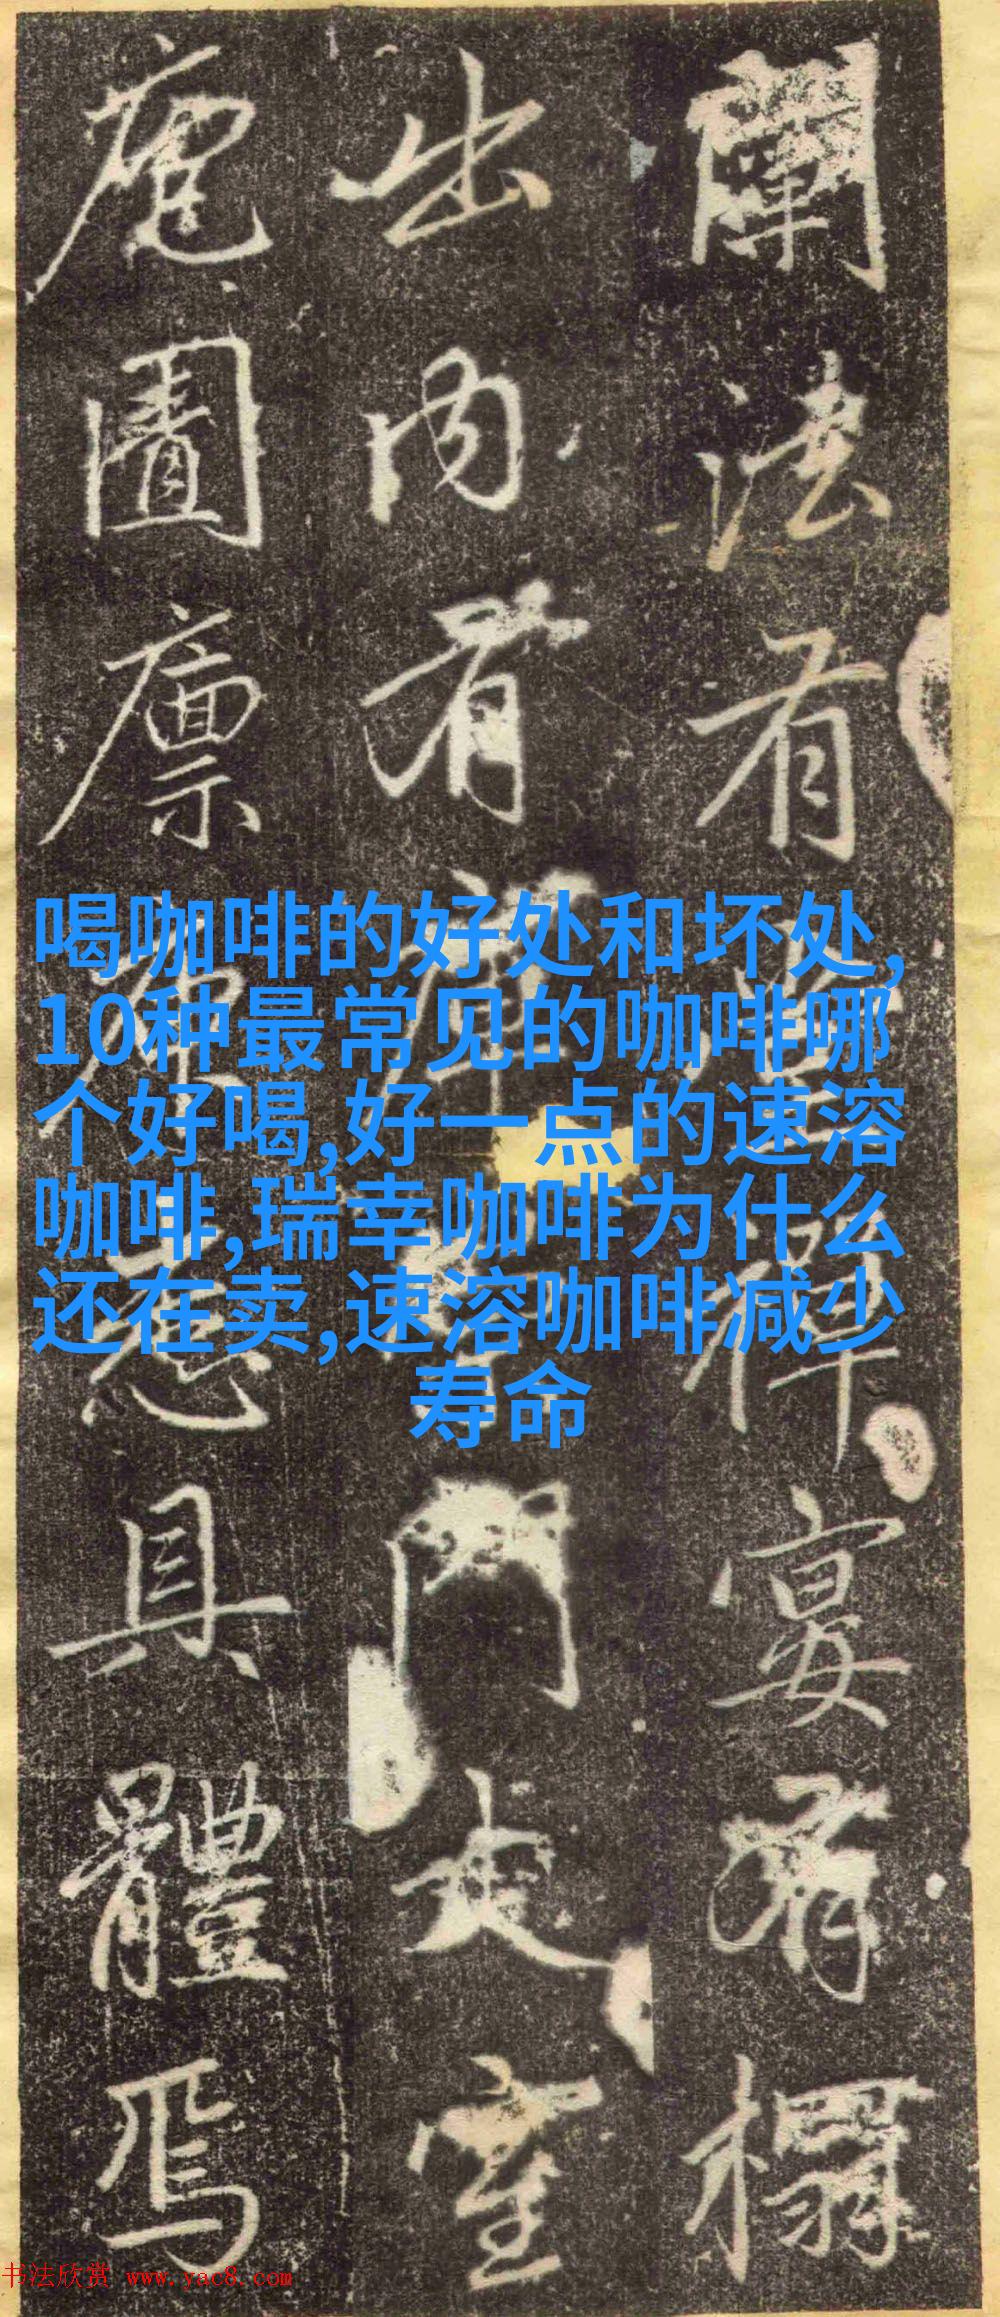 闡法有
宴有榻
出內有
門夾室
庖圊廪
具體焉
喝咖啡的好处和坏处,
10种最常见的咖啡哪
个好喝,好一点的速溶
咖啡,瑞幸咖啡为什么
还在卖,速溶咖啡减少
寿命
书法欣赏 www.yac8.com